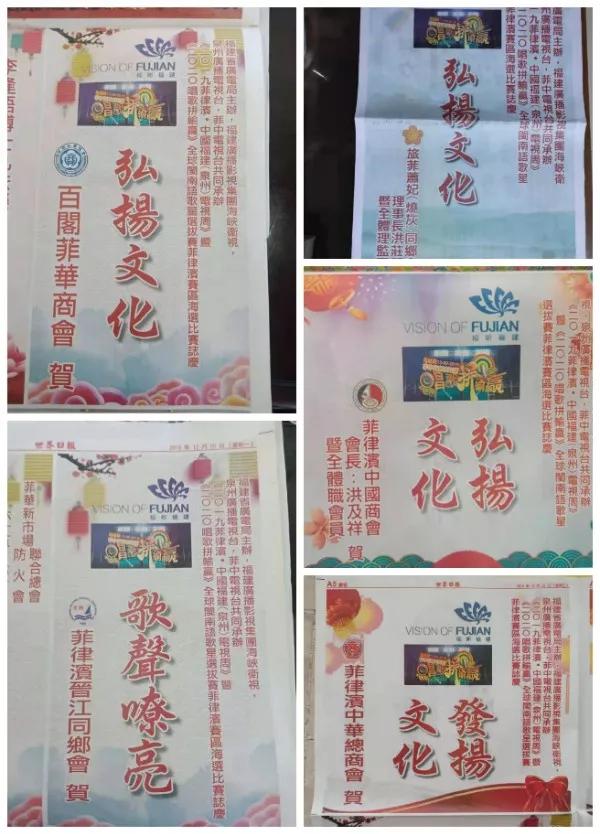 VISION OF FUJIAN
视听福建
福建省廣電局主辦，福建廣播影視集團海峽衛視，
泉州廣播電視台，菲中電視台共同承辦
《二〇一九菲律濱·中國福建（泉州）電視周》暨
《二〇二〇唱歌拼輸贏》全球閩南語歌星選拔賽菲律濱賽區海選比賽誌慶
弘揚文化
百閣菲華商會 賀
福建省廣電局主辦，福建廣播影視集團海峽衛
泉州廣播電視台，菲中電視台共同承辦
《二〇一九菲律濱·中國福建（泉州）電視周》
《二〇二〇唱歌拼輸贏》全球閩南語歌星
弘揚文化
旅菲蕭妃（燒灰）同鄉
理事長洪莊
暨全體理監
VISION OF FUJIAN
视听福建
視，泉州廣播電視台，菲中電視台共同承辦
《二〇一九菲律濱·中國福建（泉州）電視周》
暨《二〇二〇唱歌拼輸贏》全球閩南語歌星
選拔賽菲律濱賽區海選比賽誌慶
弘揚
文化
菲律濱中國商會
會長：洪及祥
暨全體職會員 賀
世界日報
VISION OF FUJIAN
视听福建
福建省廣電局主辦，福建廣播影視集團海峽衛視，
泉州廣播電視台，菲中電視台共同承辦
《二〇一九菲律濱·中國福建（泉州）電視周》暨
《二〇二〇唱歌拼輸贏》全球閩南語歌星選拔賽菲律濱賽區海選比賽誌慶
歌聲嘹亮
菲律濱晉江同鄉會 賀
菲華新市場
聯合總會
防火會
A5
世界日報
VISION OF FUJIAN
视听福建
福建省廣電局主辦，福建廣播影視集團海峽衛視，
泉州廣播電視台，菲中電視台共同承辦
《二〇一九菲律濱·中國福建（泉州）電視周》暨
《二〇二〇唱歌拼輸贏》全球閩南語歌星選拔
賽菲律濱賽區海選比賽誌慶
發揚
文化
菲律濱中華總商會 賀